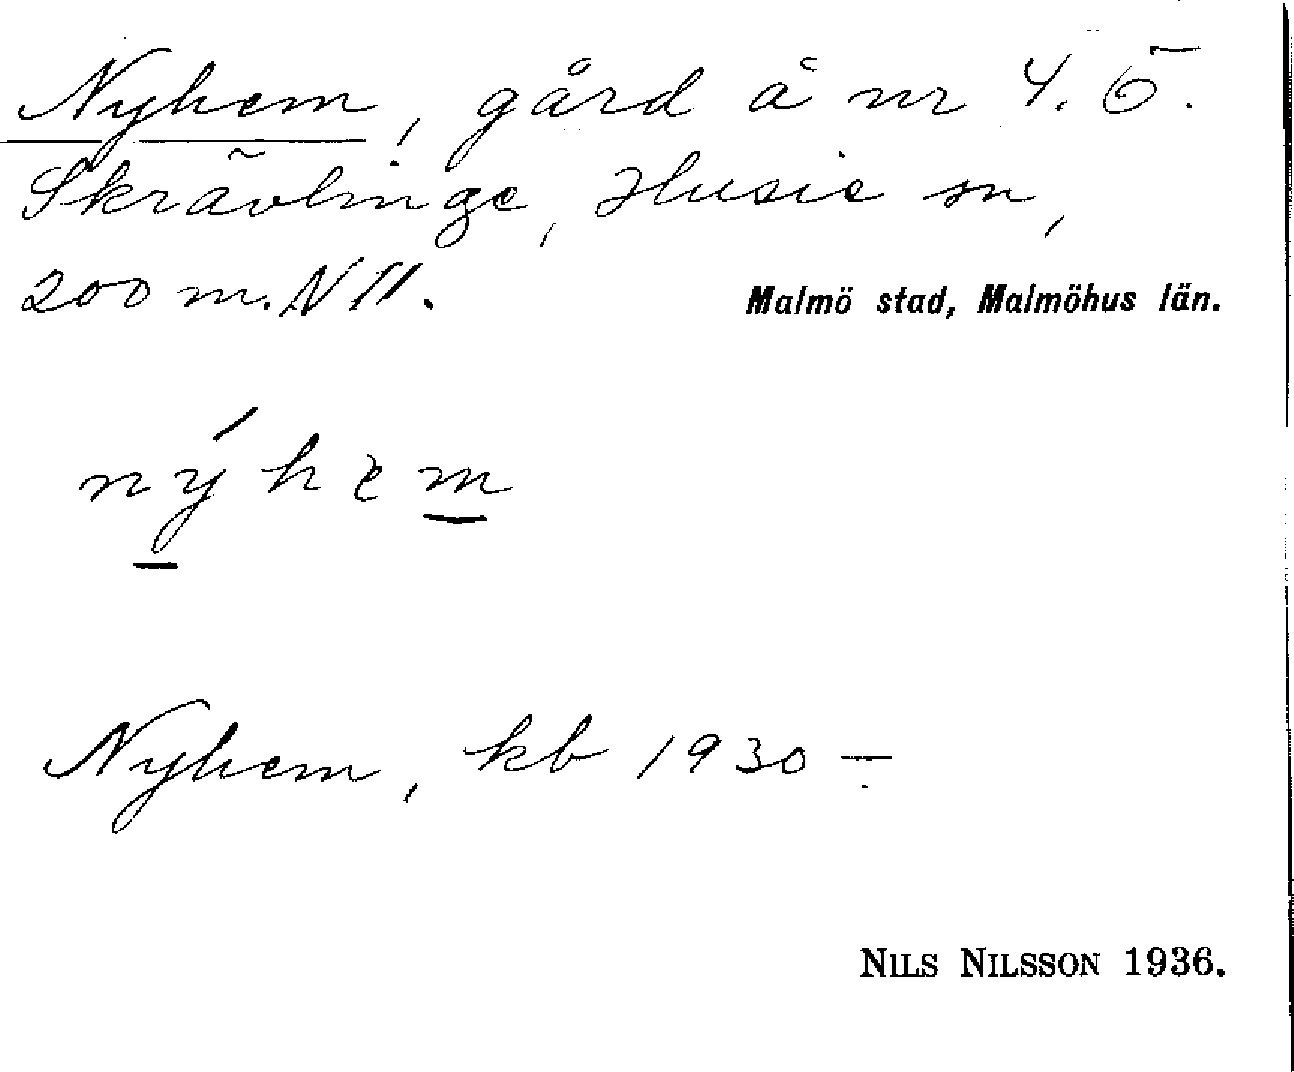 Nyhem, gård å nr 4. Ö.
Skrävlinge, Husie sn,
200 m. N 11.
Malmö stad, Malmöhus län.
nýhem
Nyhem, kb 1930 —
NILS NILSSON 1936.